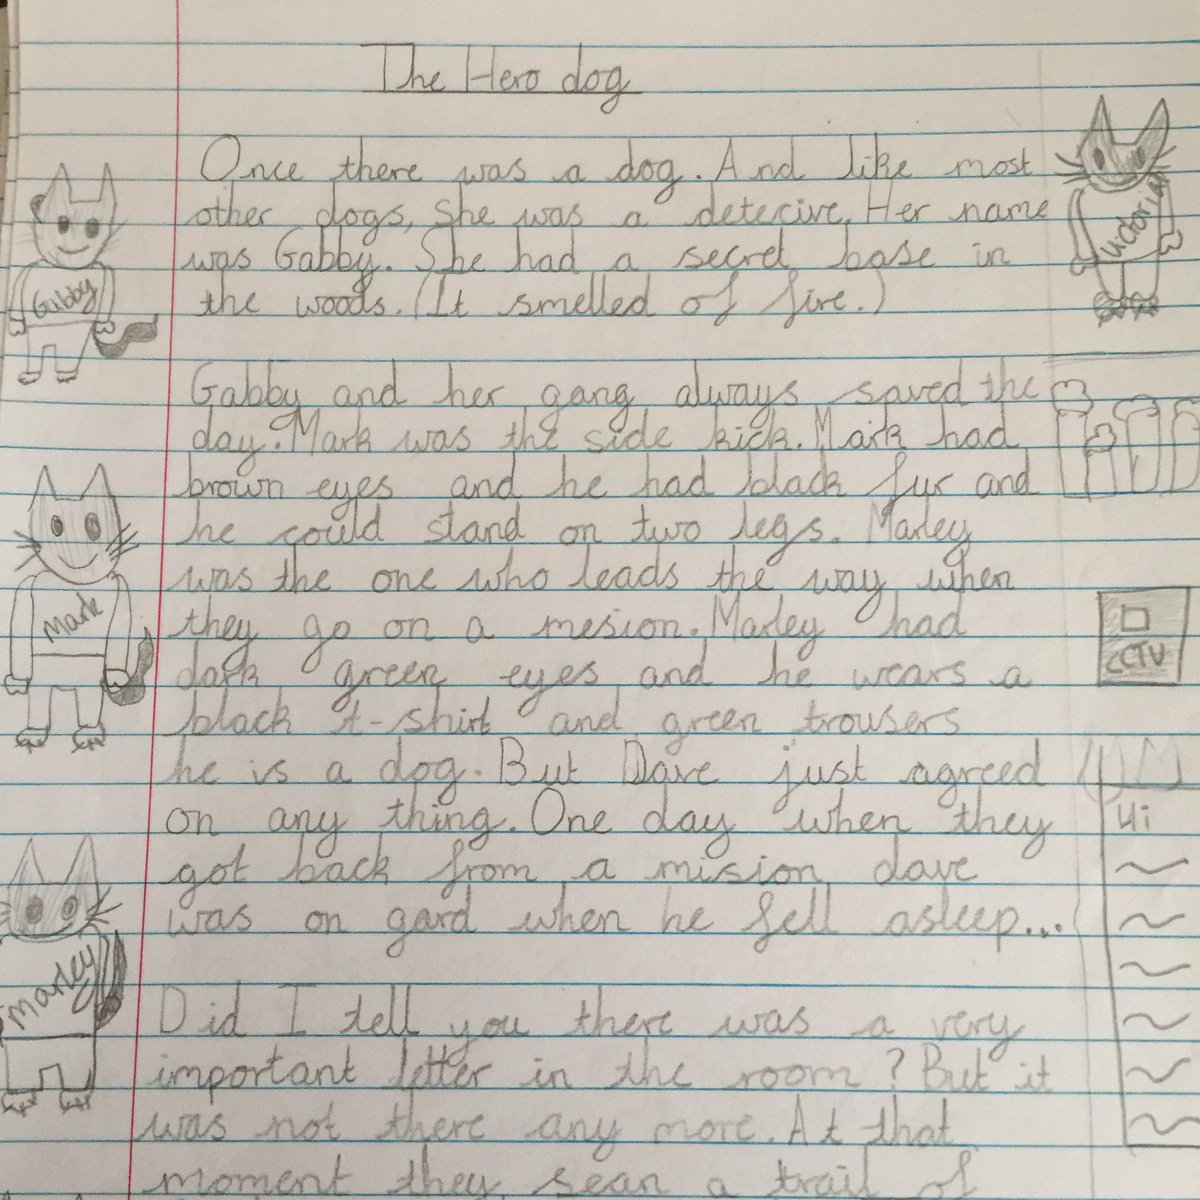 The Hero dog
Once there was a dog. And like most
other dogs, She was a detecive. Her name
was Gabby. She had a secret base in
the woods. (It smelled of fire.)
Gabby and her gang always saved the
day. Mark was the side kick. Mark had
brown eyes and he had black fur and
he could stand on two legs. Marley
was the one who leads the way when
they go on a mesion. Marley had
dark green eyes and he wears a
black t-shirt and green trousers
he is a dog. But Dave just agreed
on any thing. One day when they
got back from a mision dave
was on gard when he fell asleep...
Did I tell you there was a very
important letter in the room? But it
was not there any more. At that
moment they sean a trail of
Gabby
Mark
Marley
Victoria
CCTV
Hi